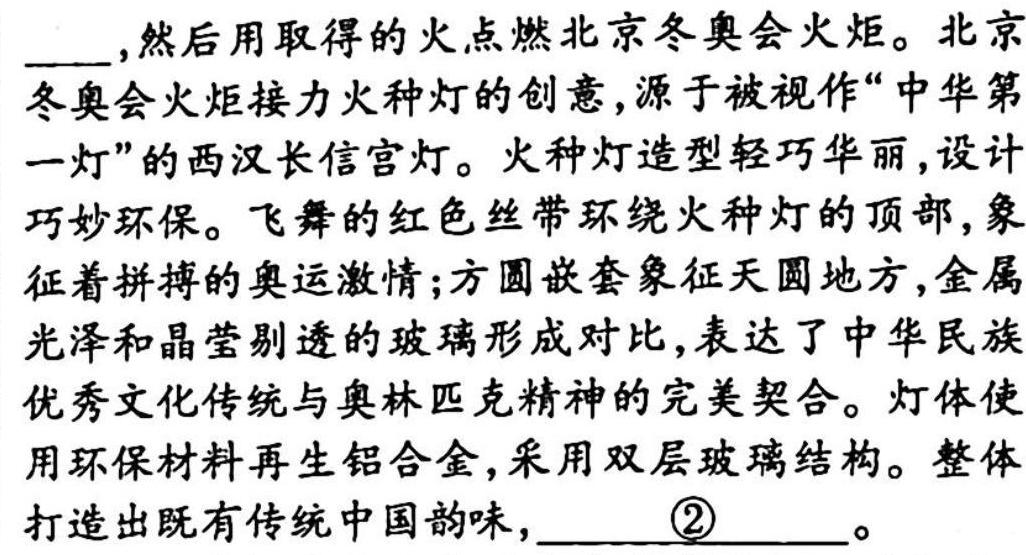 ____,然后用取得的火点燃北京冬奥会火炬。北京
冬奥会火炬接力火种灯的创意,源于被视作“中华第
一灯”的西汉长信宫灯。火种灯造型轻巧华丽,设计
巧妙环保。飞舞的红色丝带环绕火种灯的顶部,象
征着拼搏的奥运激情;方圆嵌套象征天圆地方,金属
光泽和晶莹剔透的玻璃形成对比,表达了中华民族
优秀文化传统与奥林匹克精神的完美契合。灯体使
用环保材料再生铝合金,采用双层玻璃结构。整体
打造出既有传统中国韵味,______②______。